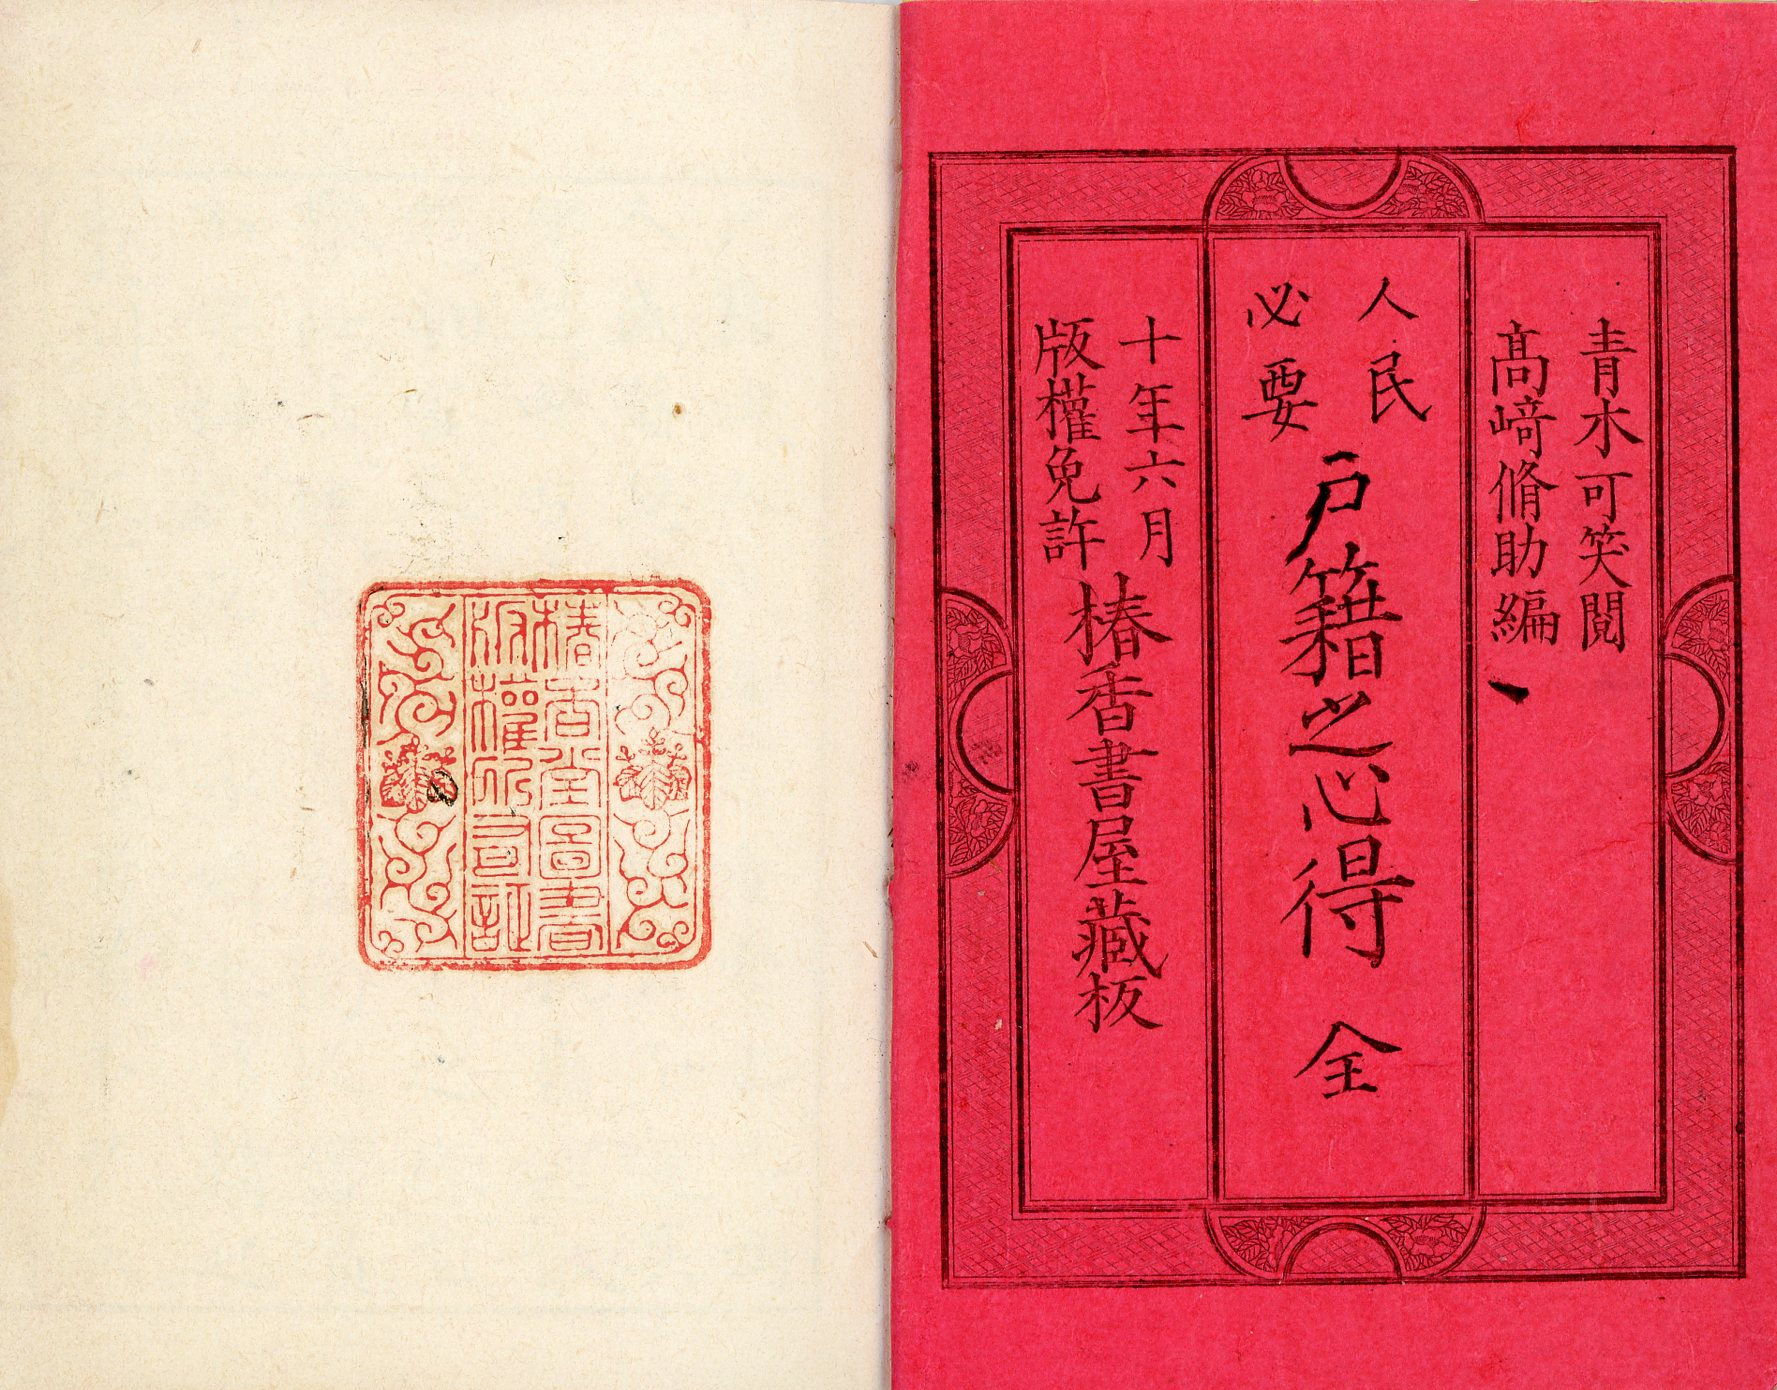 青木可笑閲
髙﨑脩助編
人民
必要
戸籍之心得 全
十年六月
版權免許
椿香書屋藏板
椿香堂圖書
版權所有